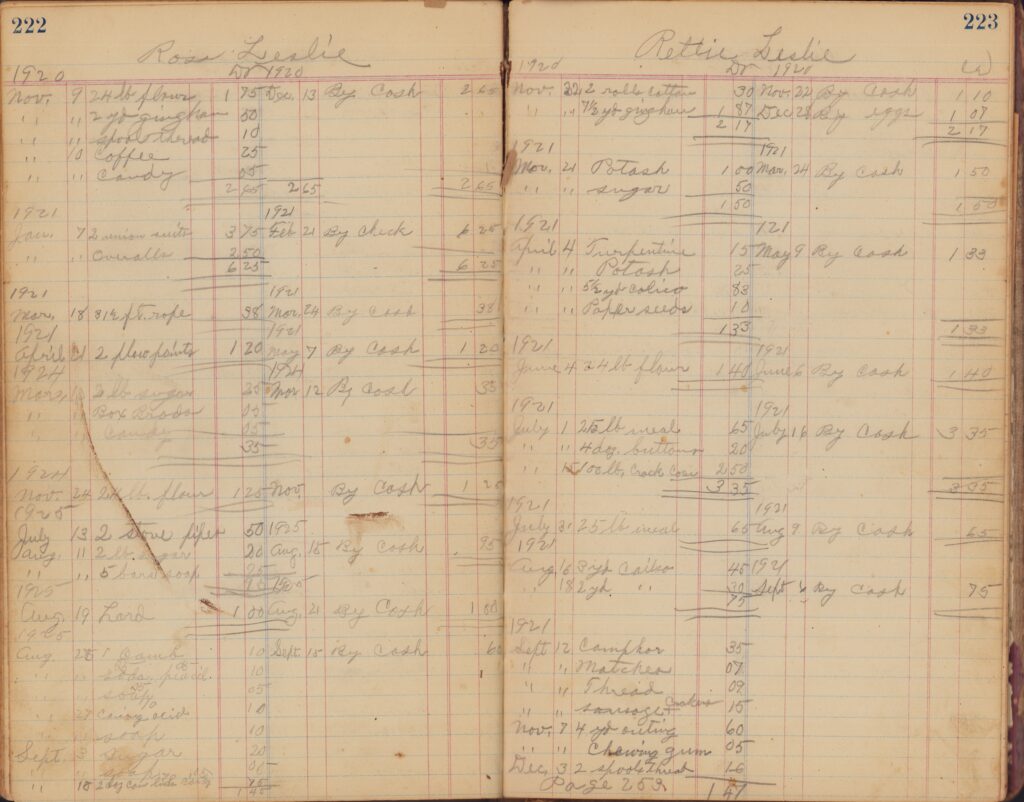 222
Ross Leslie
1920 Dr 1920
Nov. 9 24 lb flour 1 75 Dec. 13 By Cash 2 65
" " 2 yd gingham 50
" " spool thread 10
" 10 Coffee 25
" " Candy 05
2 65 2 65 2 65
1921 1921
Jan. 7 2 union suits 3 75 Feb 21 By Check 6 25
" " Overalls 2 50
6 25 6 25
1921 1921
Mar. 18 ft. rope 38 Mar. 24 By Cash 38
1921 1921
April 21 2 plow points 1 20 May 7 By Cash 1 20
1924 1924
Mar. 2 lb sugar 25 Mar 12 By Cash 35
" " Box 05
" " Candy 05
35 35
1924
Nov. 24 24 lb. flour 1 25 Nov. By Cash 1 25
1925
July 13 2 stove pipes 50 1925
Aug. 11 2 lb sugar 20 Aug. 15 By Cash 95
" " 5 bars soap 25
1925 95 1925
Aug. 19 Lard 1 00 Aug. 21 By Cash 1 00
1925
Aug. 25 1 Comb 10 Sept. 15 By Cash
" " 10
" " soap 05
" 27 acid 10
" " soap 10
Sept. 3 sugar 20
" "
" 15
1 45
223
Rettie Leslie
1920 Dr 1920
Nov. 22 2 rolls cotton 30 Nov. 22 By Cash 1 10
" " 7½ yd gingham 1 87 Dec 28 By eggs 1 07
2 17 2 17
1921 1921
Mar. 21 Potash 1 00 Mar. 24 By Cash 1 50
" " sugar 50
1 50 1 50
1921 121
April 4 Turpentine 15 May 9 By Cash 1 33
" " Potash 25
" " 5½ yd calico 83
" " Paper seeds 10
1 33 1 33
1921 1921
June 4 24 lb flour 1 40 June 6 By Cash 1 40
1921 1921
July 1 25 lb meal 65 July 16 By Cash 3 35
" " 4 doz. buttons 20
" 15 100 lb. Crack Corn 2 50
3 35 3 35
1921 1921
July 31 25 lb meal 65 Aug 9 By Cash 65
1921
Aug 16 3 yd Calico 45 1921
" 18 2 yd " " 30 Sept 6 By Cash 75
75
1921
Sept 12 Camphor 35
" " Matches 07
" " Thread 09
" " sausage + Crackers 15
Nov. 7 4 yd outing 60
" " Chewing gum 05
Dec. 3 2 spools thread 16
Page 253 1 47